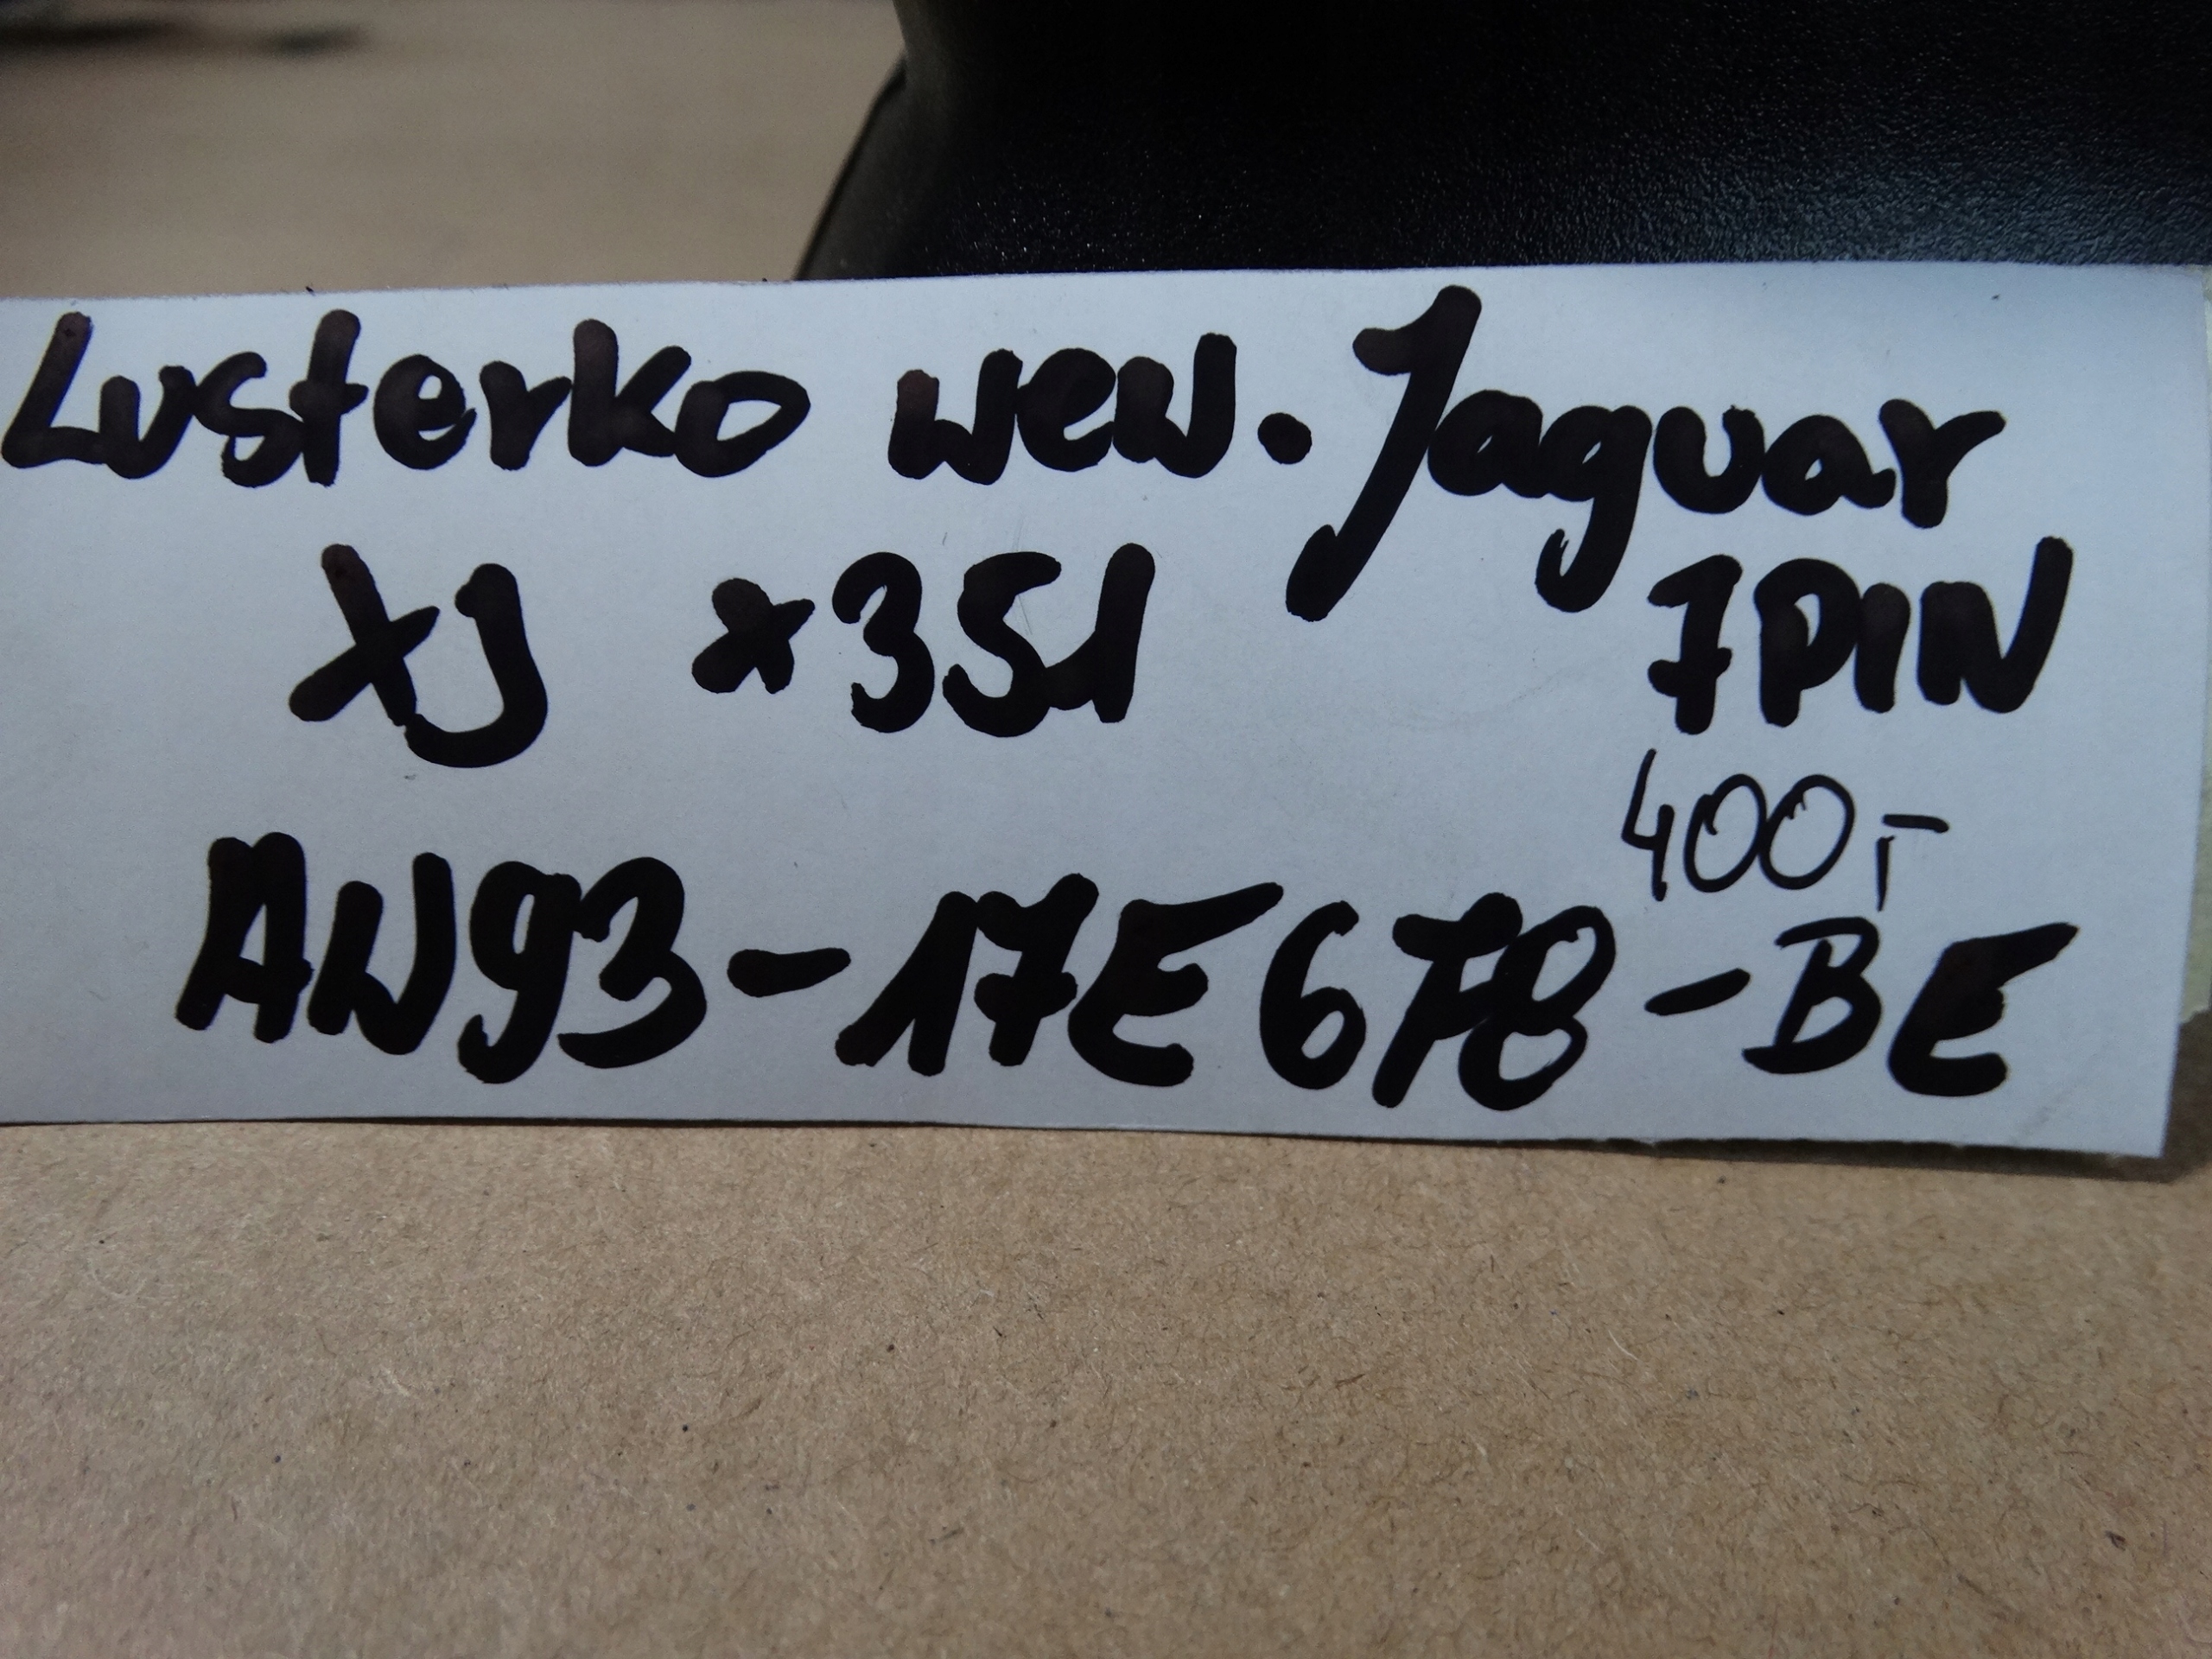 Lusterko wew. Jaguar
XJ x351 7PIN
400,-
AW93-17E678-BE